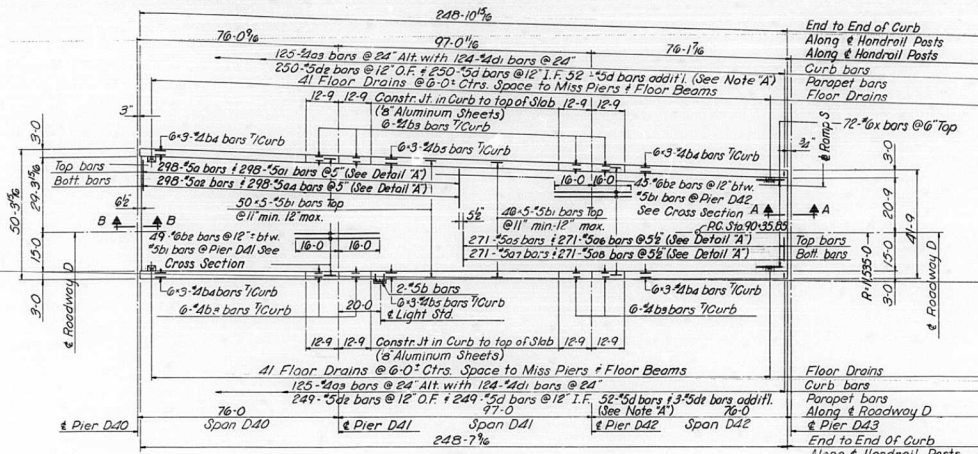 248-10 15/16
End to End of Curb
76-0 9/16
97-0 11/16
76-1 7/16
Along ₵ Handrail Posts
125-#4a3 bars @ 24" Alt. with 124-#4d1 bars @ 24"
Along ₵ Handrail Posts
Curb bars
250-#5d2 bars @ 12" O.F. & 250-#5d bars @ 12" I.F. 52-#5d bars addit'l. (See Note "A")
Parapet bars
41 Floor Drains @ 6-0± Ctrs. Space to Miss Piers & Floor Beams
Floor Drains
12-9 12-9 Constr. Jt. in Curb to top of Slab 12-9 12-9
(1/8" Aluminum Sheets)
3"
6-#4b3 bars T/Curb
72-#6x bars @ 6" Top
₵ Ramp S
3/4"
3-0
6×3-#4b4 bars T/Curb
6×3-#4b5 bars T/Curb
6×3-#4b4 bars T/Curb
3-0
Top bars
298-#5a & 298-#5a1 bars @ 5" (See Detail "A")
Bott. bars
298-#5a2 & 298-#5a4 bars @ 5" (See Detail "A")
16-0 16-0
45-#6b2 bars @ 12" btw.
#5b1 bars @ Pier D42
See Cross Section
50-3 15/16
29-3 15/16
20-9
41-9
6 1/2
50×5-#5b1 bars Top
@ 11" min. 12" max.
5 1/2
46×5-#5b1 bars Top
@ 11" min-12" max.
A A
B B
P.C. Sta. 90+35.65
49-#6b2 bars @ 12"± btw.
#5b1 bars @ Pier D41 See
Cross Section
16-0 16-0
271-#5a5 bars & 271-#5a6 bars @ 5 1/2" (See Detail "A")
Top bars
271-#5a7 bars & 271-#5a8 bars @ 5 1/2" (See Detail "A")
Bott. bars
15-0
15-0
R=11,535-0
2-#5b bars
3-0
6×3-#4b4 bars T/Curb
6×3-#4b5 bars T/Curb
6×3-#4b4 bars T/Curb
3-0
6-#4b3 bars T/Curb
20-0
₵ Light Std.
6-#4b3 bars T/Curb
₵ Roadway D
₵ Roadway D
12-9 12-9 Constr. Jt in Curb to top of Slab 12-9 12-9
(1/8" Aluminum Sheets)
41 Floor Drains @ 6-0± Ctrs. Space to Miss Piers & Floor Beams
Floor Drains
125-#4a3 bars @ 24" Alt. with 124-#4d1 bars @ 24"
Curb bars
249-#5d2 bars @ 12" O.F. & 249-#5d bars @ 12" I.F. 52-#5d bars & 3-#5d2 bars addit'l.
Parapet bars
(See Note "A")
76-0
97-0
76-0
Along ₵ Roadway D
₵ Pier D40
Span D40
₵ Pier D41
Span D41
₵ Pier D42
Span D42
₵ Pier D43
248-7 9/16
End to End Of Curb
Along ₵ Handrail Posts